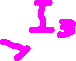 I3
>